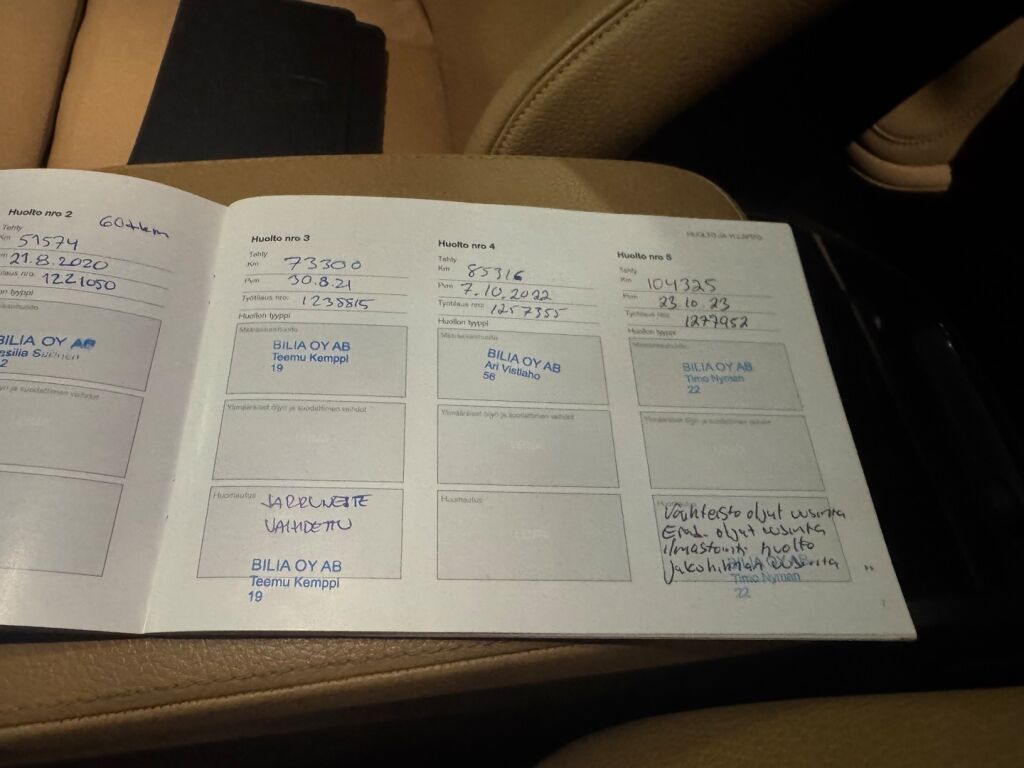 Huolto nro 2
60tkm
Tehty
Km 51574
21.8.2020
nro: 1221050
BILIA OY AB
2
Huolto nro 3
Tehty
Km 73300
Pvm 30.8.21
Työtilaus nro: 1238815
Huollon tyyppi
Määräaikaishuolto
BILIA OY AB
Teemu Kemppi
19
Ylimääräiset öljyn ja suodattimen vaihdot
Huomautus JARRUNESTE
VAIHDETTU
BILIA OY AB
Teemu Kemppi
19
Huolto nro 4
Tehty
Km 85316
Pvm 7.10.2022
Työtilaus nro: 1257355
Huollon tyyppi
Määräaikaishuolto
BILIA OY AB
Ari Vistiaho
56
Ylimääräiset öljyn ja suodattimen vaihdot
Huomautus
HUOLTO JA YLLÄPITO
Huolto nro 5
Tehty
Km 104325
Pvm 23.10.23
Työtilaus nro: 1277952
Huollon tyyppi
Määräaikaishuolto
BILIA OY AB
Timo Nyman
22
Ylimääräiset öljyn ja suodattimen vaihdot
Huomautus
Vaihteisto öljyt uusinta
öljyt uusinta
ilmastointi huolto
BILIA OY AB
Timo Nyman
22
>>
7